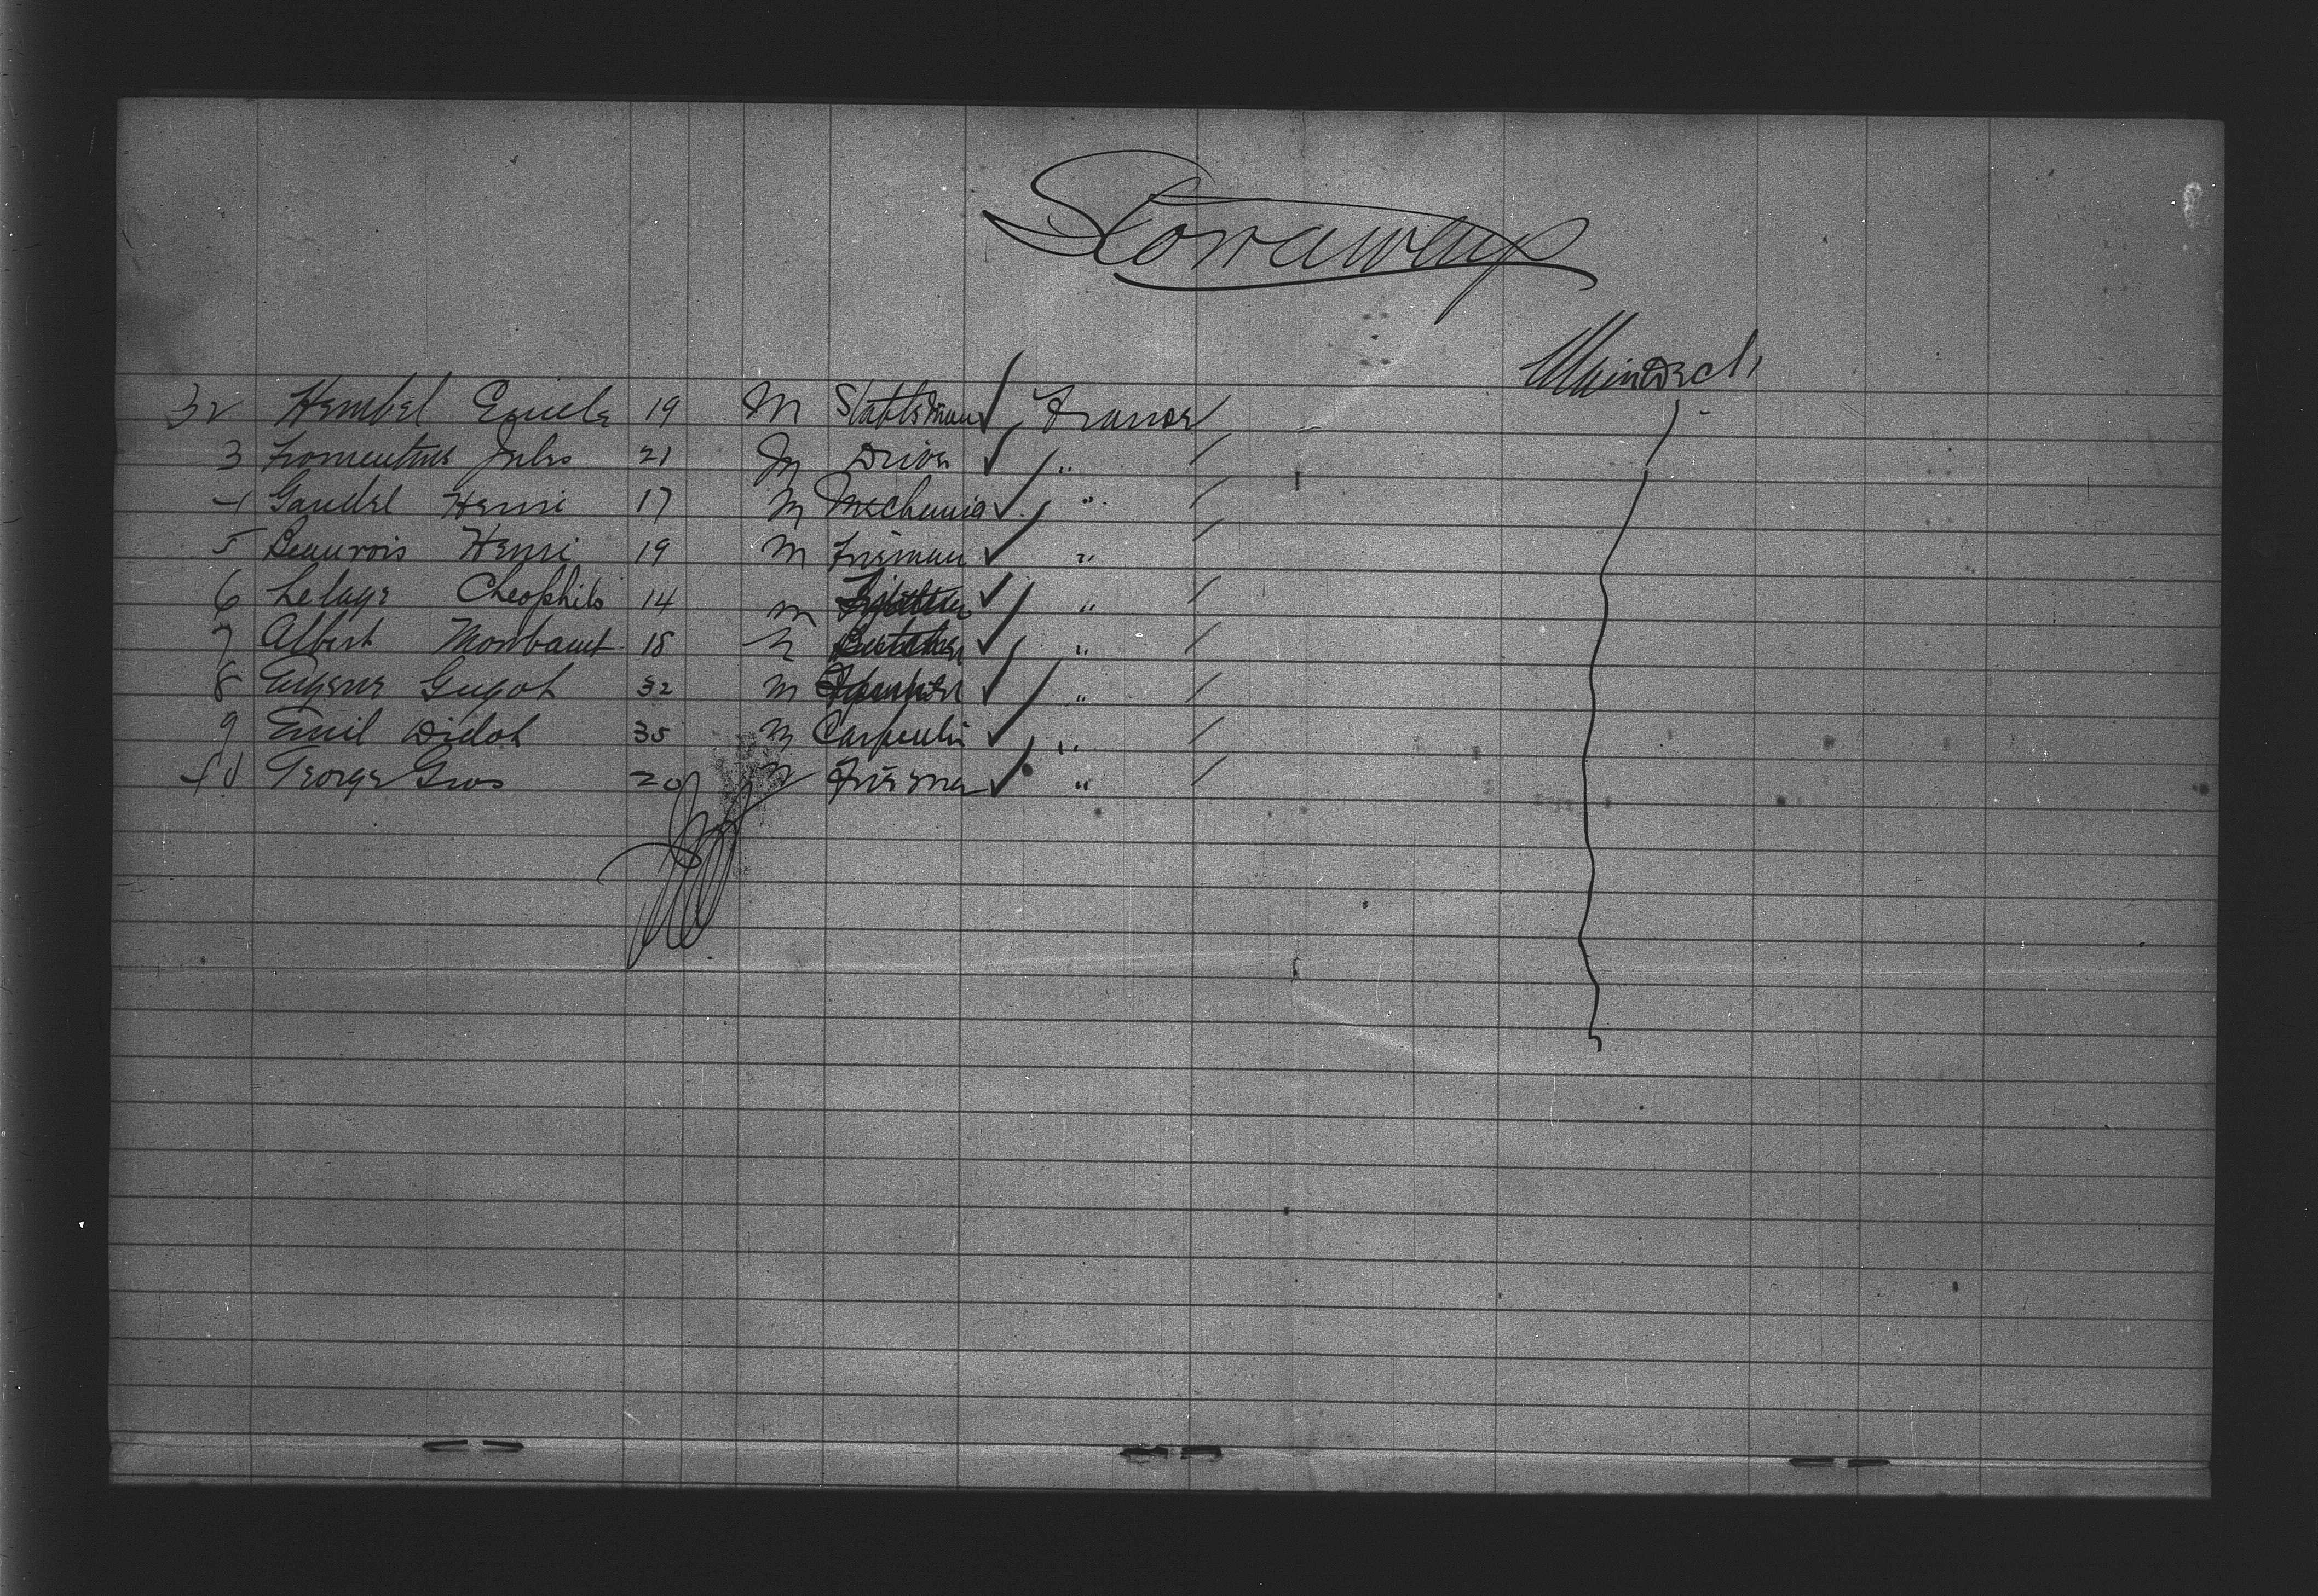 Stowaways
32 Hembel Emile 19 M Stableman France /
3 Fromentin Jules 21 M Driver " /
4 Gaudel Henri 17 M Mechanic " /
5 Beauvois Henri 19 M Fireman " /
6 Lelage Theophile 14 M " /
7 Albert Monbaut 18 M Butcher " /
8 Eugene Guyot 32 M " /
9 Emil Didot 35 M Carpenter " /
40 George Gros 20 M Fireman " /